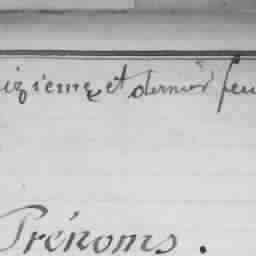 izieme et dernier feu
Prénoms.